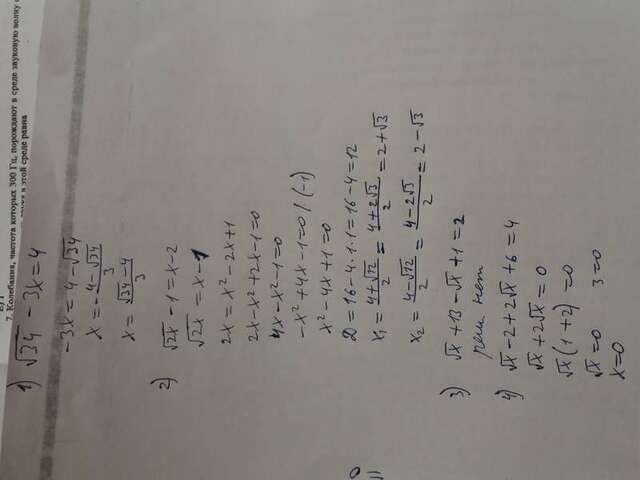 В) 1
7. Колебания, частота которых 300 Гц, порождают в среде звуковую волну
в этой среде равна
1) √34 - 3x = 4
-3x = 4 - √34
x = -(4-√34)/3
x = (√34-4)/3
2) √2x - 1 = x - 2
√2x = x - 1
2x = x² - 2x + 1
2x - x² + 2x - 1 = 0
4x - x² - 1 = 0
-x² + 4x - 1 = 0 / (-1)
x² - 4x + 1 = 0
D = 16 - 4·1·1 = 16 - 4 = 12
x₁ = (4+√12)/2 = (4+2√3)/2 = 2+√3
x₂ = (4-√12)/2 = (4-2√3)/2 = 2-√3
3) √x + 13 - √x + 1 = 2
реш. нет
4) √x - 2 + 2√x + 6 = 4
√x + 2√x = 0
√x (1 + 2) = 0
√x = 0 3 = 0
x = 0